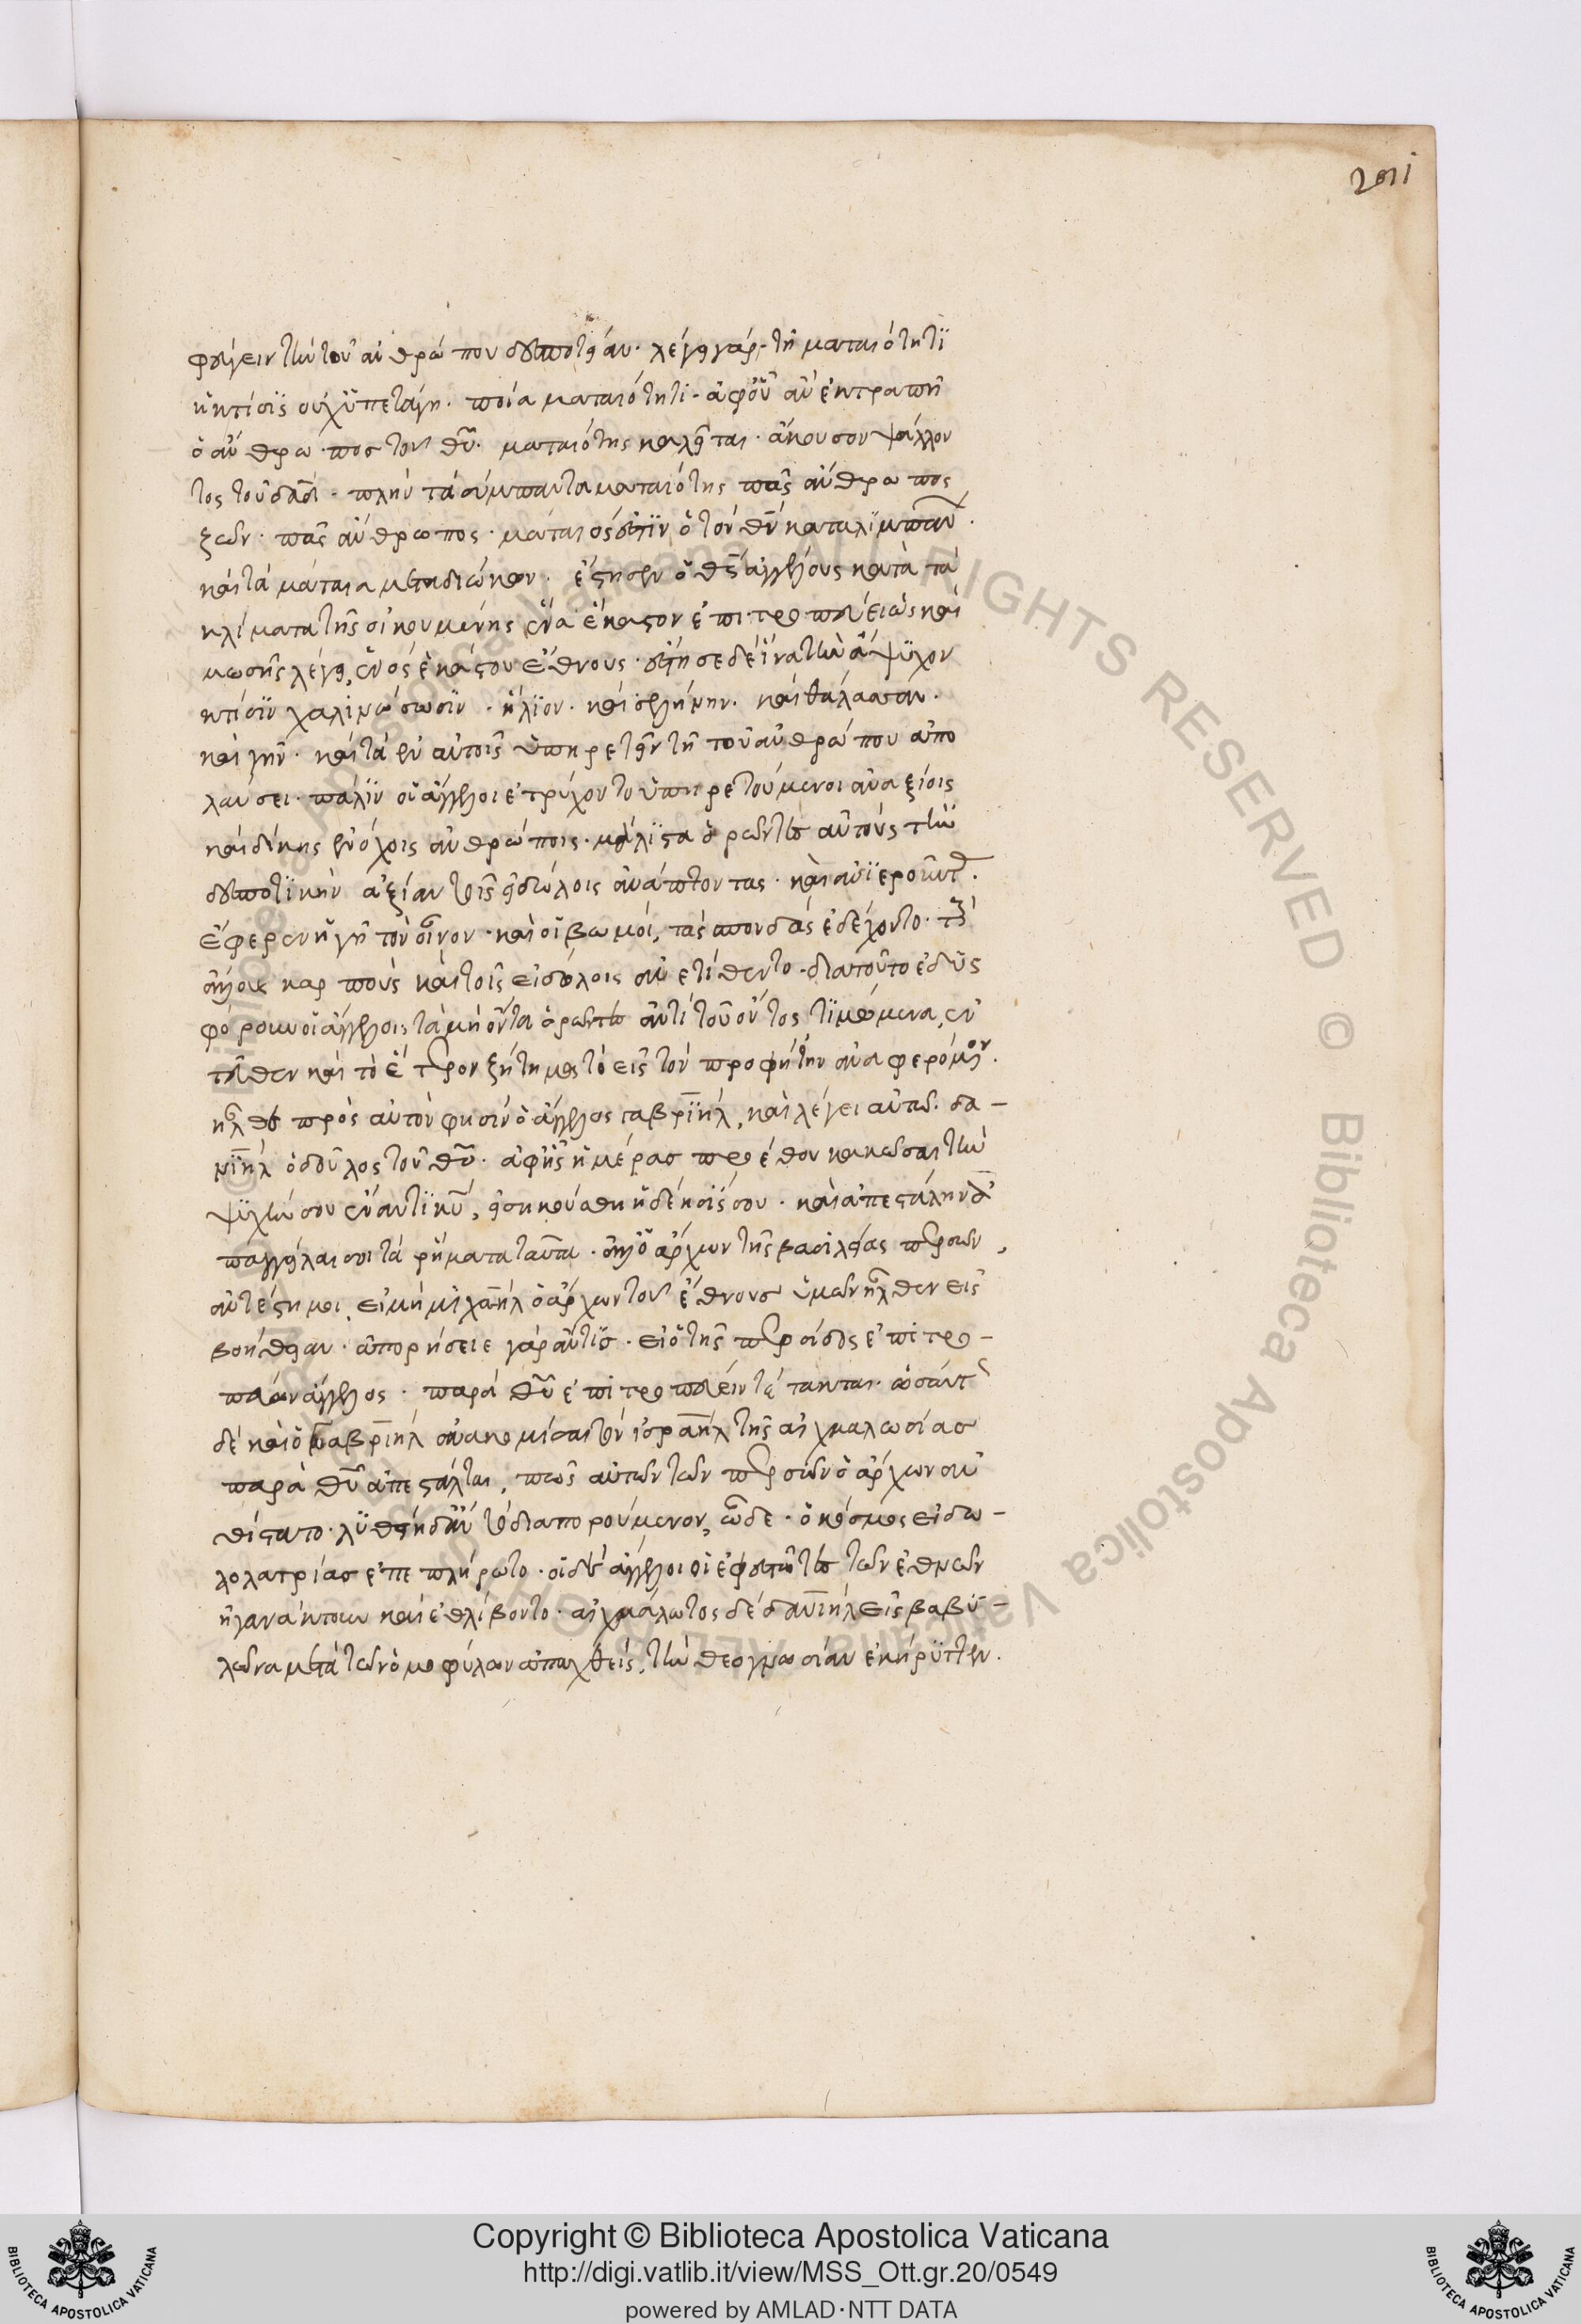 201
φεύγειν τὴν τοῦ ἀνθρώπου δεσποτείαν. λέγει γάρ. τῆ ματαιότητϊ
ἡ κτίσϊς οὐχ ὑπετάγη. ποία ματαιότητι. ἀφ' οὗ ἂν ἐκτραπῆ
ὁ ἄνθρωπος τοῦ θῦ. ματαιότης καλεῖται. ἄκουσον ψάλλον
τος τοῦ δαδ̄. πλὴν τὰ σύμπαντα ματαιότης πᾶς ἄνθρωπος
ζῶν. πᾶς ἄνθρωπος. μάταιός ἐστϊν ὁ τὸν θν̄ καταλϊμπάνων.
καὶ τὰ μάταια μεταδιώκων. ἔστησεν ὁ θς̄ ἀγγέλους κατὰ τὰ
κλίματα τῆς οἰκουμένης ἕνα ἕκαστον ἐπιτροπεύειν ὡς καὶ
μωσῆς λέγει, ἑνὸς ἑκάστου ἔθνους. ἔστησε δὲ ἵνα τὴν ἄψϋχον
κτίσϊν χαλινώσωσϊν. ἥλϊον. καὶ σελήνην. καὶ θάλασσαν.
καὶ γῆν. καὶ τὰ ἐν αὐτοῖς ὑπηρετεῖν τῆ τοῦ ἀνθρώπου ἀπο
λαύσει. πάλϊν οἱ ἄγγελοι ἐτρύχοντο ὑπηρετούμενοι ἀναξίοις
καὶ δίκης ἐνόχοις ἀνθρώποις. μάλϊστα ὁρῶντες αὐτοὺς τὴν
δεσποτϊκὴν ἀξίαν τοῖς εἰδώλοις ἀνάπτοντας. καὶ ἀνϊεροῦντας.
ἔφερεν ἡ γῆ τὸν οἶνον. καὶ οἱ βωμοί, τὰς σπονδὰς ἐδέχοντο. τοὺς
καρποὺς καὶ τοῖς εἰδώλοις ἀνετίθεντο. διατοῦτο ἐδυς
φόρουν οἱ ἄγγελοι, τὰ μὴ ὄντα ὁρῶντες ἀντὶ τοῦ ὄντος τϊμώμενα, ἐν
τεῦθεν καὶ τὸ ἕτερον ζήτημα τὸ εἰς τὸν προφήτην ἀναφερόμενον.
ἦλθε πρὸς αὐτὸν φησὶν ὁ ἄγγελος γαβρϊὴλ, καὶ λέγει αὐτῶ. δα-
νϊὴλ ὁ δοῦλος τοῦ θῦ. ἀφ' ἧς ἡμέρας προέθου κακῶσαι τὴν
ψϋχήν σου ἐναντϊ κῦ, εἰσηκούσθη ἡ δέησίς σου. καὶ ἀπεστάλην
παγγεῖλαι σοι τὰ ῥήματα ταῦτα. ὁ ἄρχων τῆς βασιλείας περσῶν,
ἀντέστη μοι, εἰ μὴ μϊχαὴλ ὁ ἄρχων τοῦ ἔθνους ὑμῶν ἦλθεν εἰς
βοήθειαν. ἀπορήσειε γὰρ ἄν τϊς. εἰ ὁ τῆς περσίδος ἐπιτρο-
πεύων ἄγγελος. παρὰ θῦ ἐπιτροπεύειν τέτακται. ὡσαύτως
δὲ καὶ ὁ γαβρϊὴλ ἀνακομίσαι τὸν ἰσραὴλ τῆς αἰχμαλωσίας
παρὰ θῦ ἀπέσταλται, πῶς αὐτῶν τῶν περσῶν ὁ ἄρχων ἀν
θίστατο. λϋθείη δ' ἂν τὸ διαπορούμενον, ὧδε. ὁ κόσμος εἰδω-
λολατρίας ἐπεπλήρωτο. οἱ δὲ ἄγγελοι οἱ ἐφεστῶτες τῶν ἐθνῶν
ἠγανάκτουν καὶ ἐθλίβοντο. αἰχμάλωτος δὲ δανϊὴλ εἰς βαβϋ-
λῶνα μετὰ τῶν ὁμοφύλων ἀπαχθεὶς, τὴν θεογνωσίαν ἐκήρϋττεν.
Copyright © Biblioteca Apostolica Vaticana
http://digi.vatlib.it/view/MSS_Ott.gr.20/0549
powered by AMLAD·NTT DATA
BIBLIOTECA APOSTOLICA VATICANA
BIBLIOTECA APOSTOLICA VATICANA
Biblioteca Apostolica Vaticana ALL RIGHTS RESERVED ©